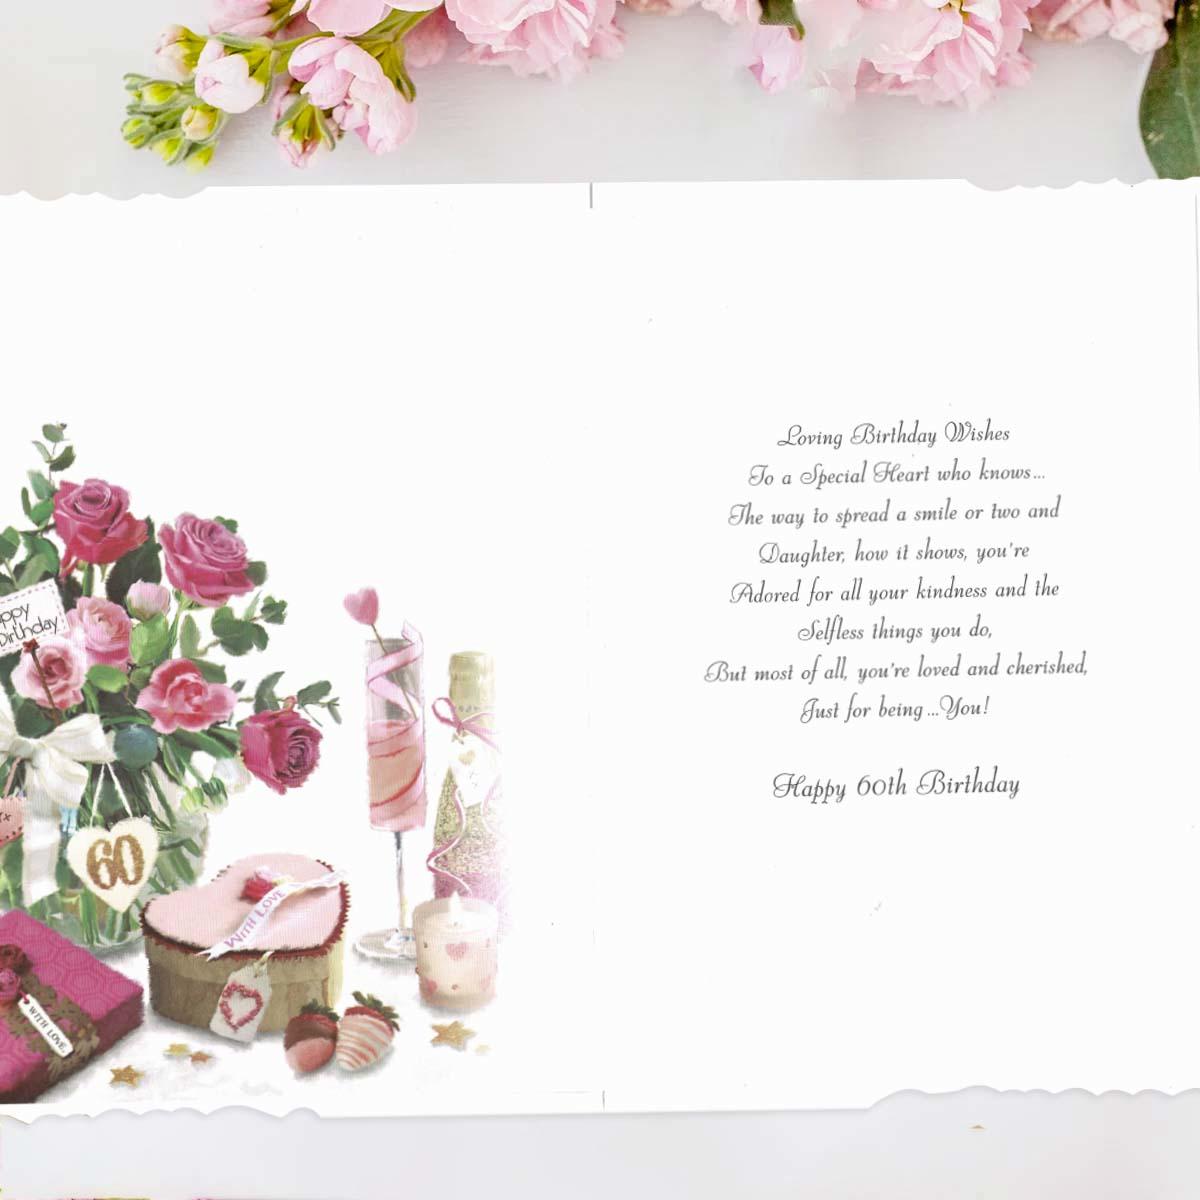 Loving Birthday Wishes
To a Special Heart who knows...
The way to spread a smile or two and
Daughter, how it shows, you're
Adored for all your kindness and the
Selfless things you do,
But most of all, you're loved and cherished,
Just for being ...You!
Happy 60th Birthday
ppy
Birthday
60
WITH LOVE
WITH LOVE.